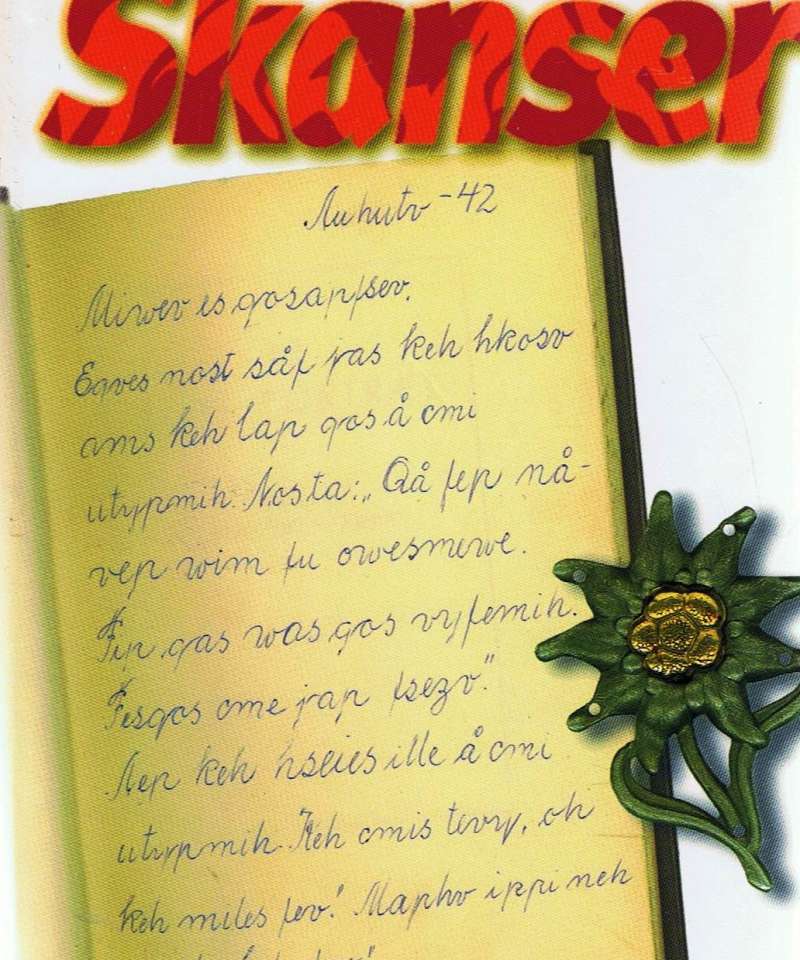 Skanser
Auhutv - 42
Mirvev es gosapfsev.
Eqves nost såf pas keh hkosv
ams keh lap gos å cmi
utypmih. Nosta: „Qå fep nå-
vep wim fu owesmewe.
Fyp gas was gos vyfemih.
Fesgos ome pap fsezv."
Aep keh hseies ille å cmi
utypmih. "Keh cmis tevy, oh
keh miles fev! Maphv ippi neh